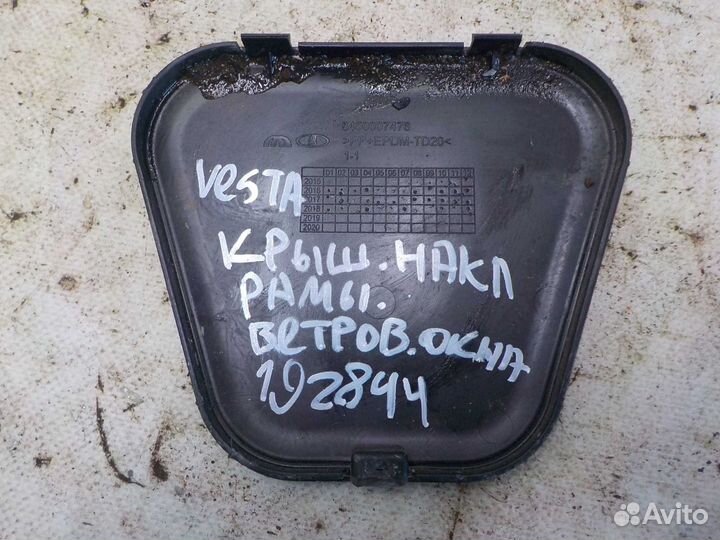 8450007476
>PP+EPDM-TD20<
1-1
01 02 03 04 05 06 07 08 09 10 11 12
2015
2016
2017
2018
2019
2020
VESTA
КРЫШ.НАКЛ
РАМЫ.
ВЕТРОВ.ОКНА
192844
Avito